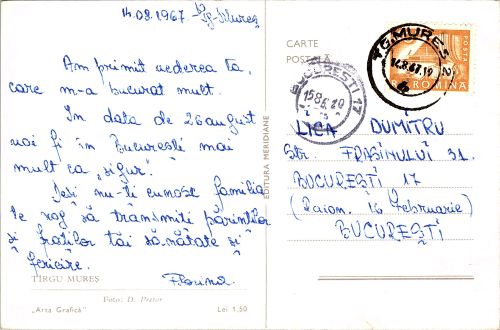 14.08.1967. Tg-Mureș
Am primit vederea ta,
care m-a bucurat mult.
În data de 26 august
voi fi în București mai
mult ca „sigur".
Deși nu-ți cunosc familia
te rog să transmiți părinților
și fraților tăi sănătate și
fericire.
Florina
TIRGU MUREȘ
Foto: D. Pretor
„Arta Grafică" Lei 1.50
EDITURA MERIDIANE
CARTE
POȘTALĂ
BUCUREȘTI 17
TG. MUREȘ 2
14.8.67.19
POSTA
ROMINA
LICA DUMITRU
Str. FRASINULUI 31.
BUCUREȘTI 17
(Raion. 16 Februarie)
BUCUREȘTI